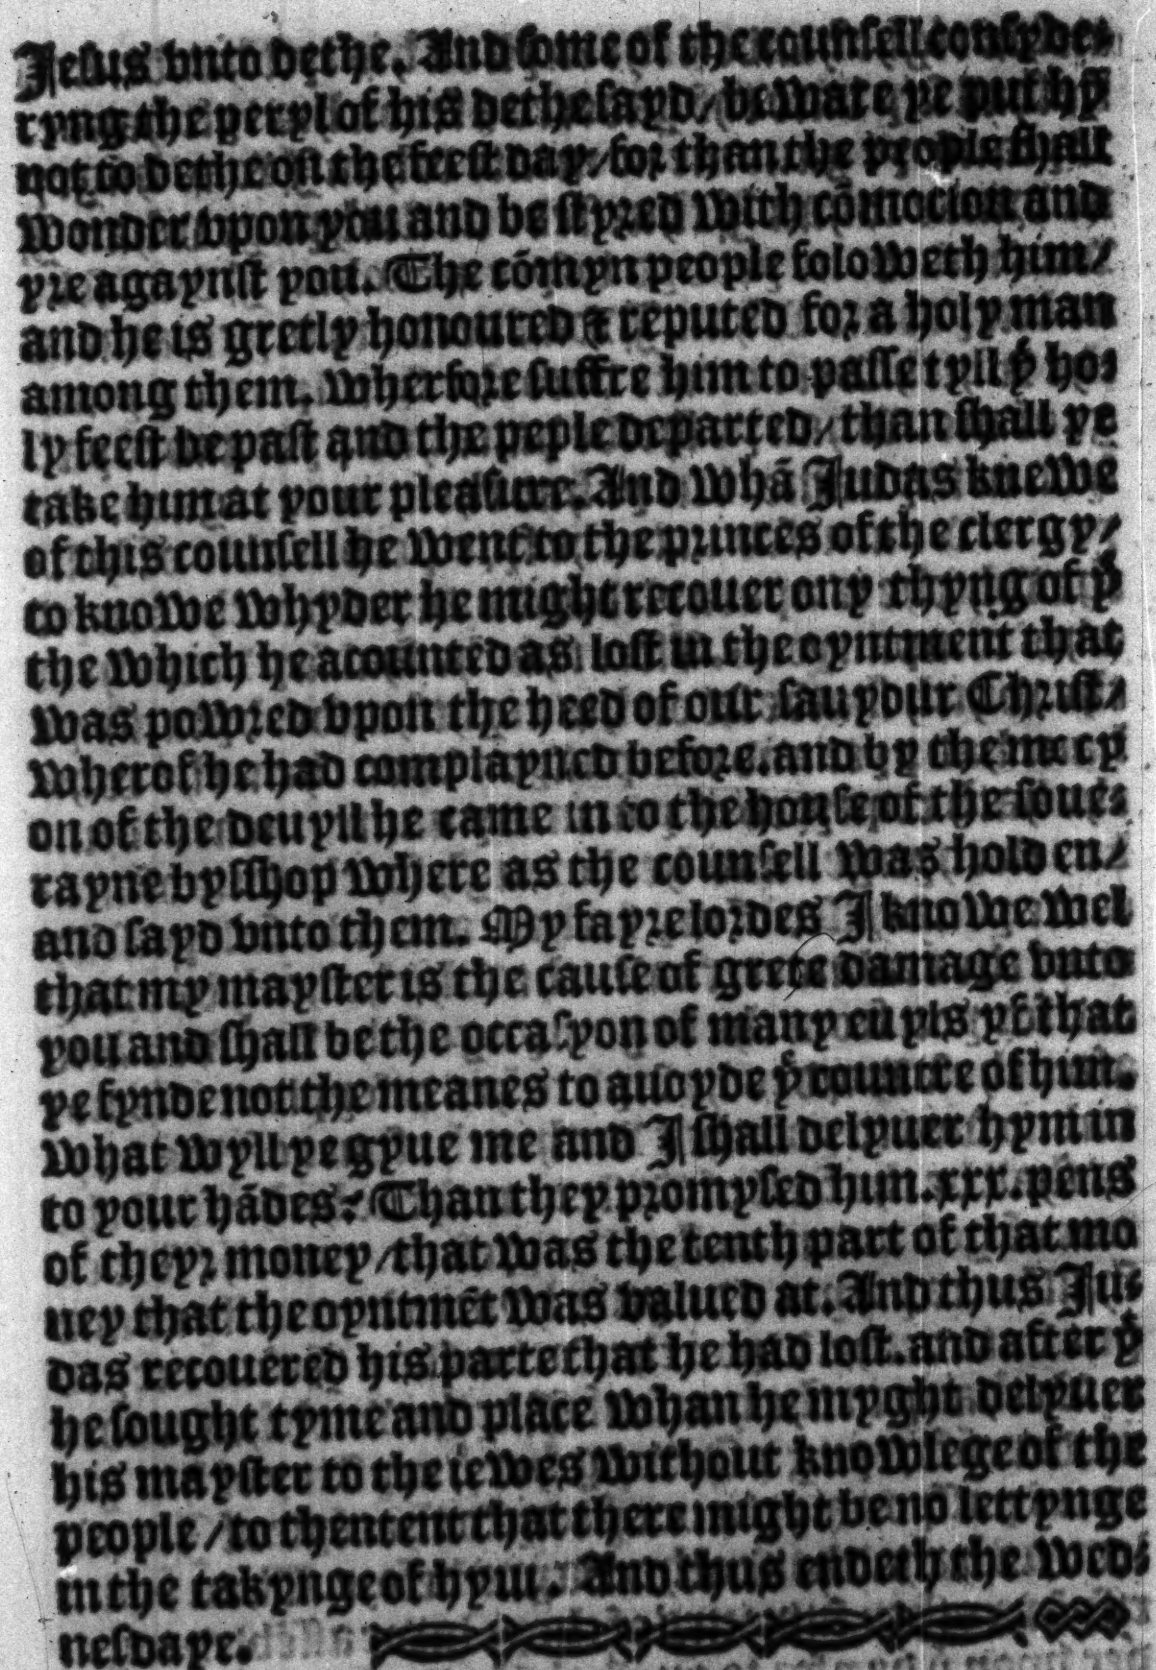 Jesus vnto dethe. And some of the counsell consyde⸗
ryng the peryl of his dethe sayd / beware ye put hȳ
not to dethe on the feest day / for than the people shall
wonder vpon you and be styred with cōmocion and
yre agaynst you. The cōmyn people foloweth him /
and he is gretly honoured & reputed for a holy man
among them. Wherfore suffre him to passe tyll yͤ ho⸗
ly feest be past and the peple departed / than shall ye
take him at your pleasure. And whā Judas knewe
of this counsell he went to the princes of the clergy /
to knowe whyder he might recouer ony thyng of yͭ
the which he acounted as lost in the oyntment that
was powred vpon the heed of our sauyour Christ /
wherof he had complayned before. and by the mocy
on of the deuyll he came in to the house of the soue⸗
rayne bysshop where as the counsell was holden /
and sayd vnto them. My fayre lordes I knowe wel
that my mayster is the cause of grete damage vnto
you and shall be the occasyon of many euyls yf that
ye fynde not the meanes to auoyde yͤ countre of him.
What wyll ye gyue me and I shall delyuer hym in
to your hādes? Than they promysed him .xxx. pens
of theyr money / that was the tenth part of that mo
ney that the oyntmēt was valued at. And thus Ju⸗
das recouered his parte that he had lost. and after yͭ
he sought tyme and place whan he myght delyuer
his mayster to the iewes without knowlege of the
people / to thentent that there might be no lettynge
in the takynge of hym. And thus endeth the wed⸗
nesdaye.